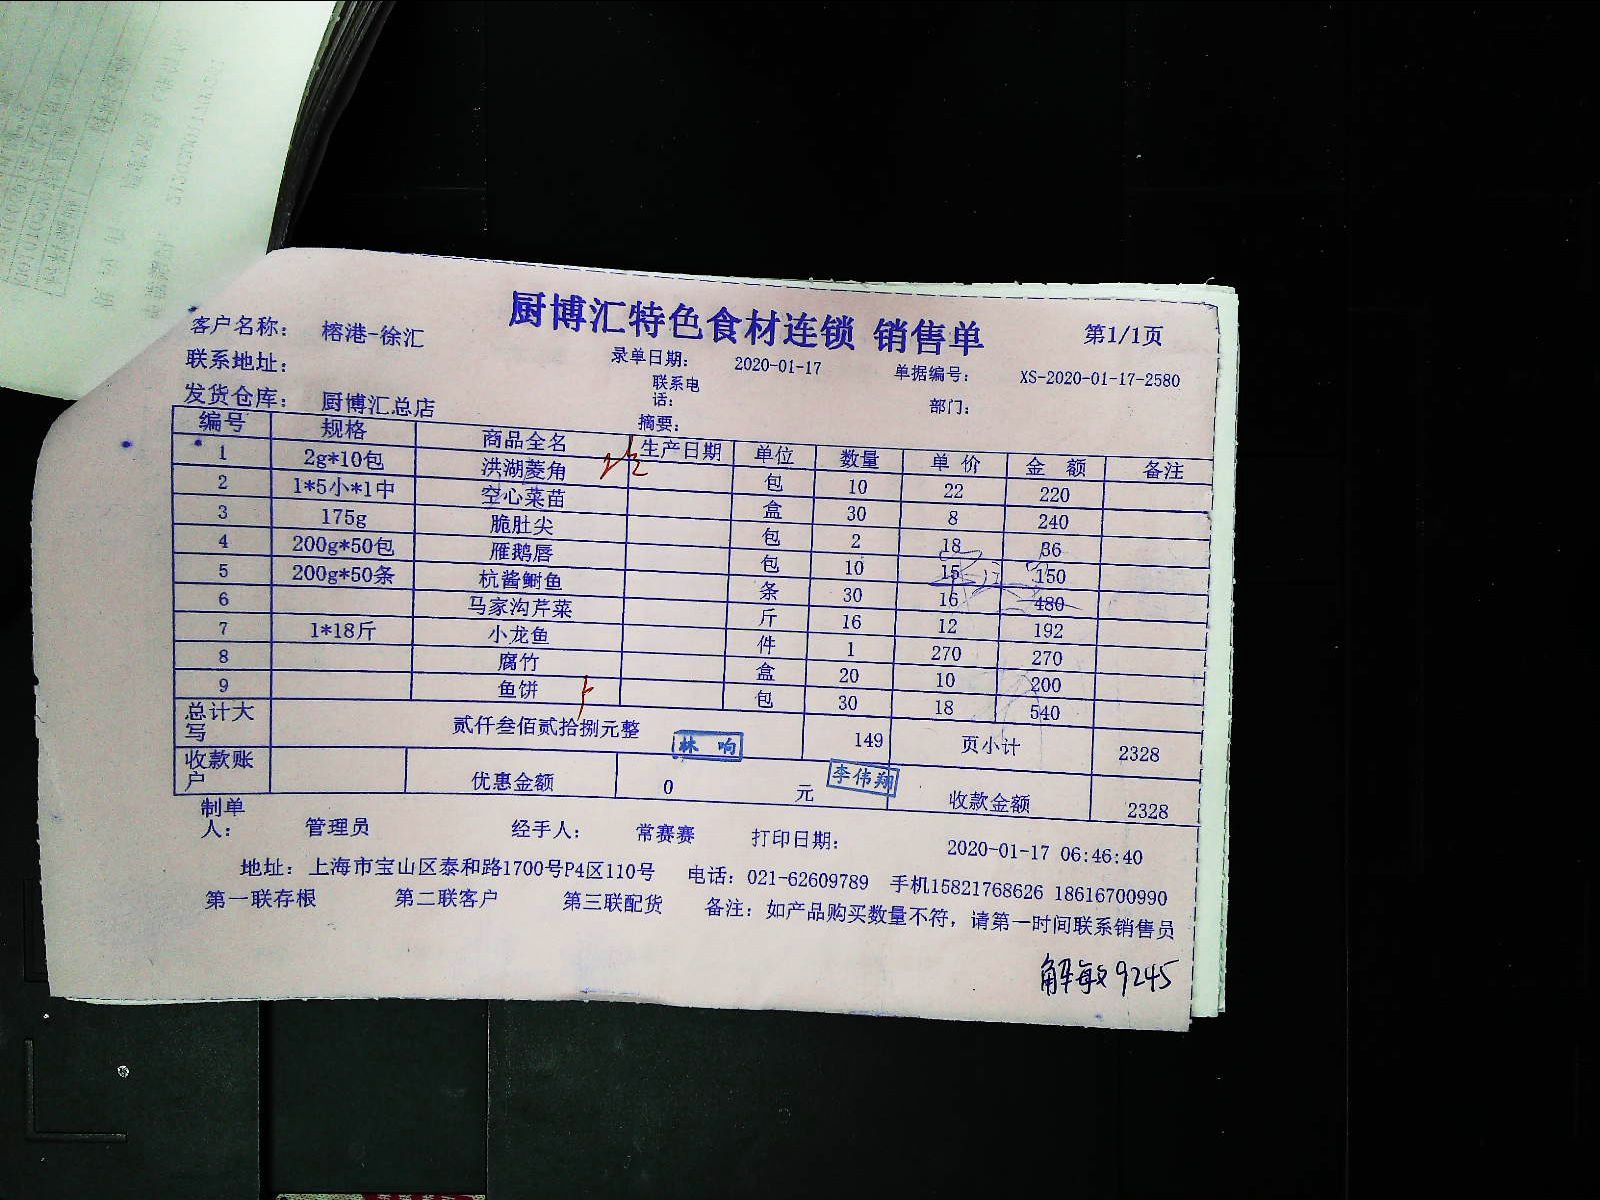 厨博汇特色食材连锁 销售单
第1/1页
客户名称： 榕港-徐汇
录单日期： 2020-01-17 单据编号： XS-2020-01-17-2580
联系地址： 联系电话： 部门：
发货仓库： 厨博汇总店 摘要：
编号 规格 商品全名 生产日期 单位 数量 单价 金额 备注
1 2g*10包 洪湖菱角 包 10 22 220
2 1*5小*1中 空心菜苗 盒 30 8 240
3 175g 脆肚尖 包 2 18 36
4 200g*50包 雁鹅唇 包 10 15 150
5 200g*50条 杭酱鲥鱼 条 30 16 480
6 马家沟芹菜 斤 16 12 192
7 1*18斤 小龙鱼 件 1 270 270
8 腐竹 盒 20 10 200
9 鱼饼 包 30 18 540
总计大写 贰仟叁佰贰拾捌元整 149 页小计 2328
林响
李伟翔
收款账户 优惠金额 0 元 收款金额 2328
制单人： 管理员 经手人： 常赛赛 打印日期： 2020-01-17 06:46:40
地址：上海市宝山区泰和路1700号P4区110号 电话：021-62609789 手机15821768626 18616700990
第一联存根 第二联客户 第三联配货 备注：如产品购买数量不符，请第一时间联系销售员
解敏 9245